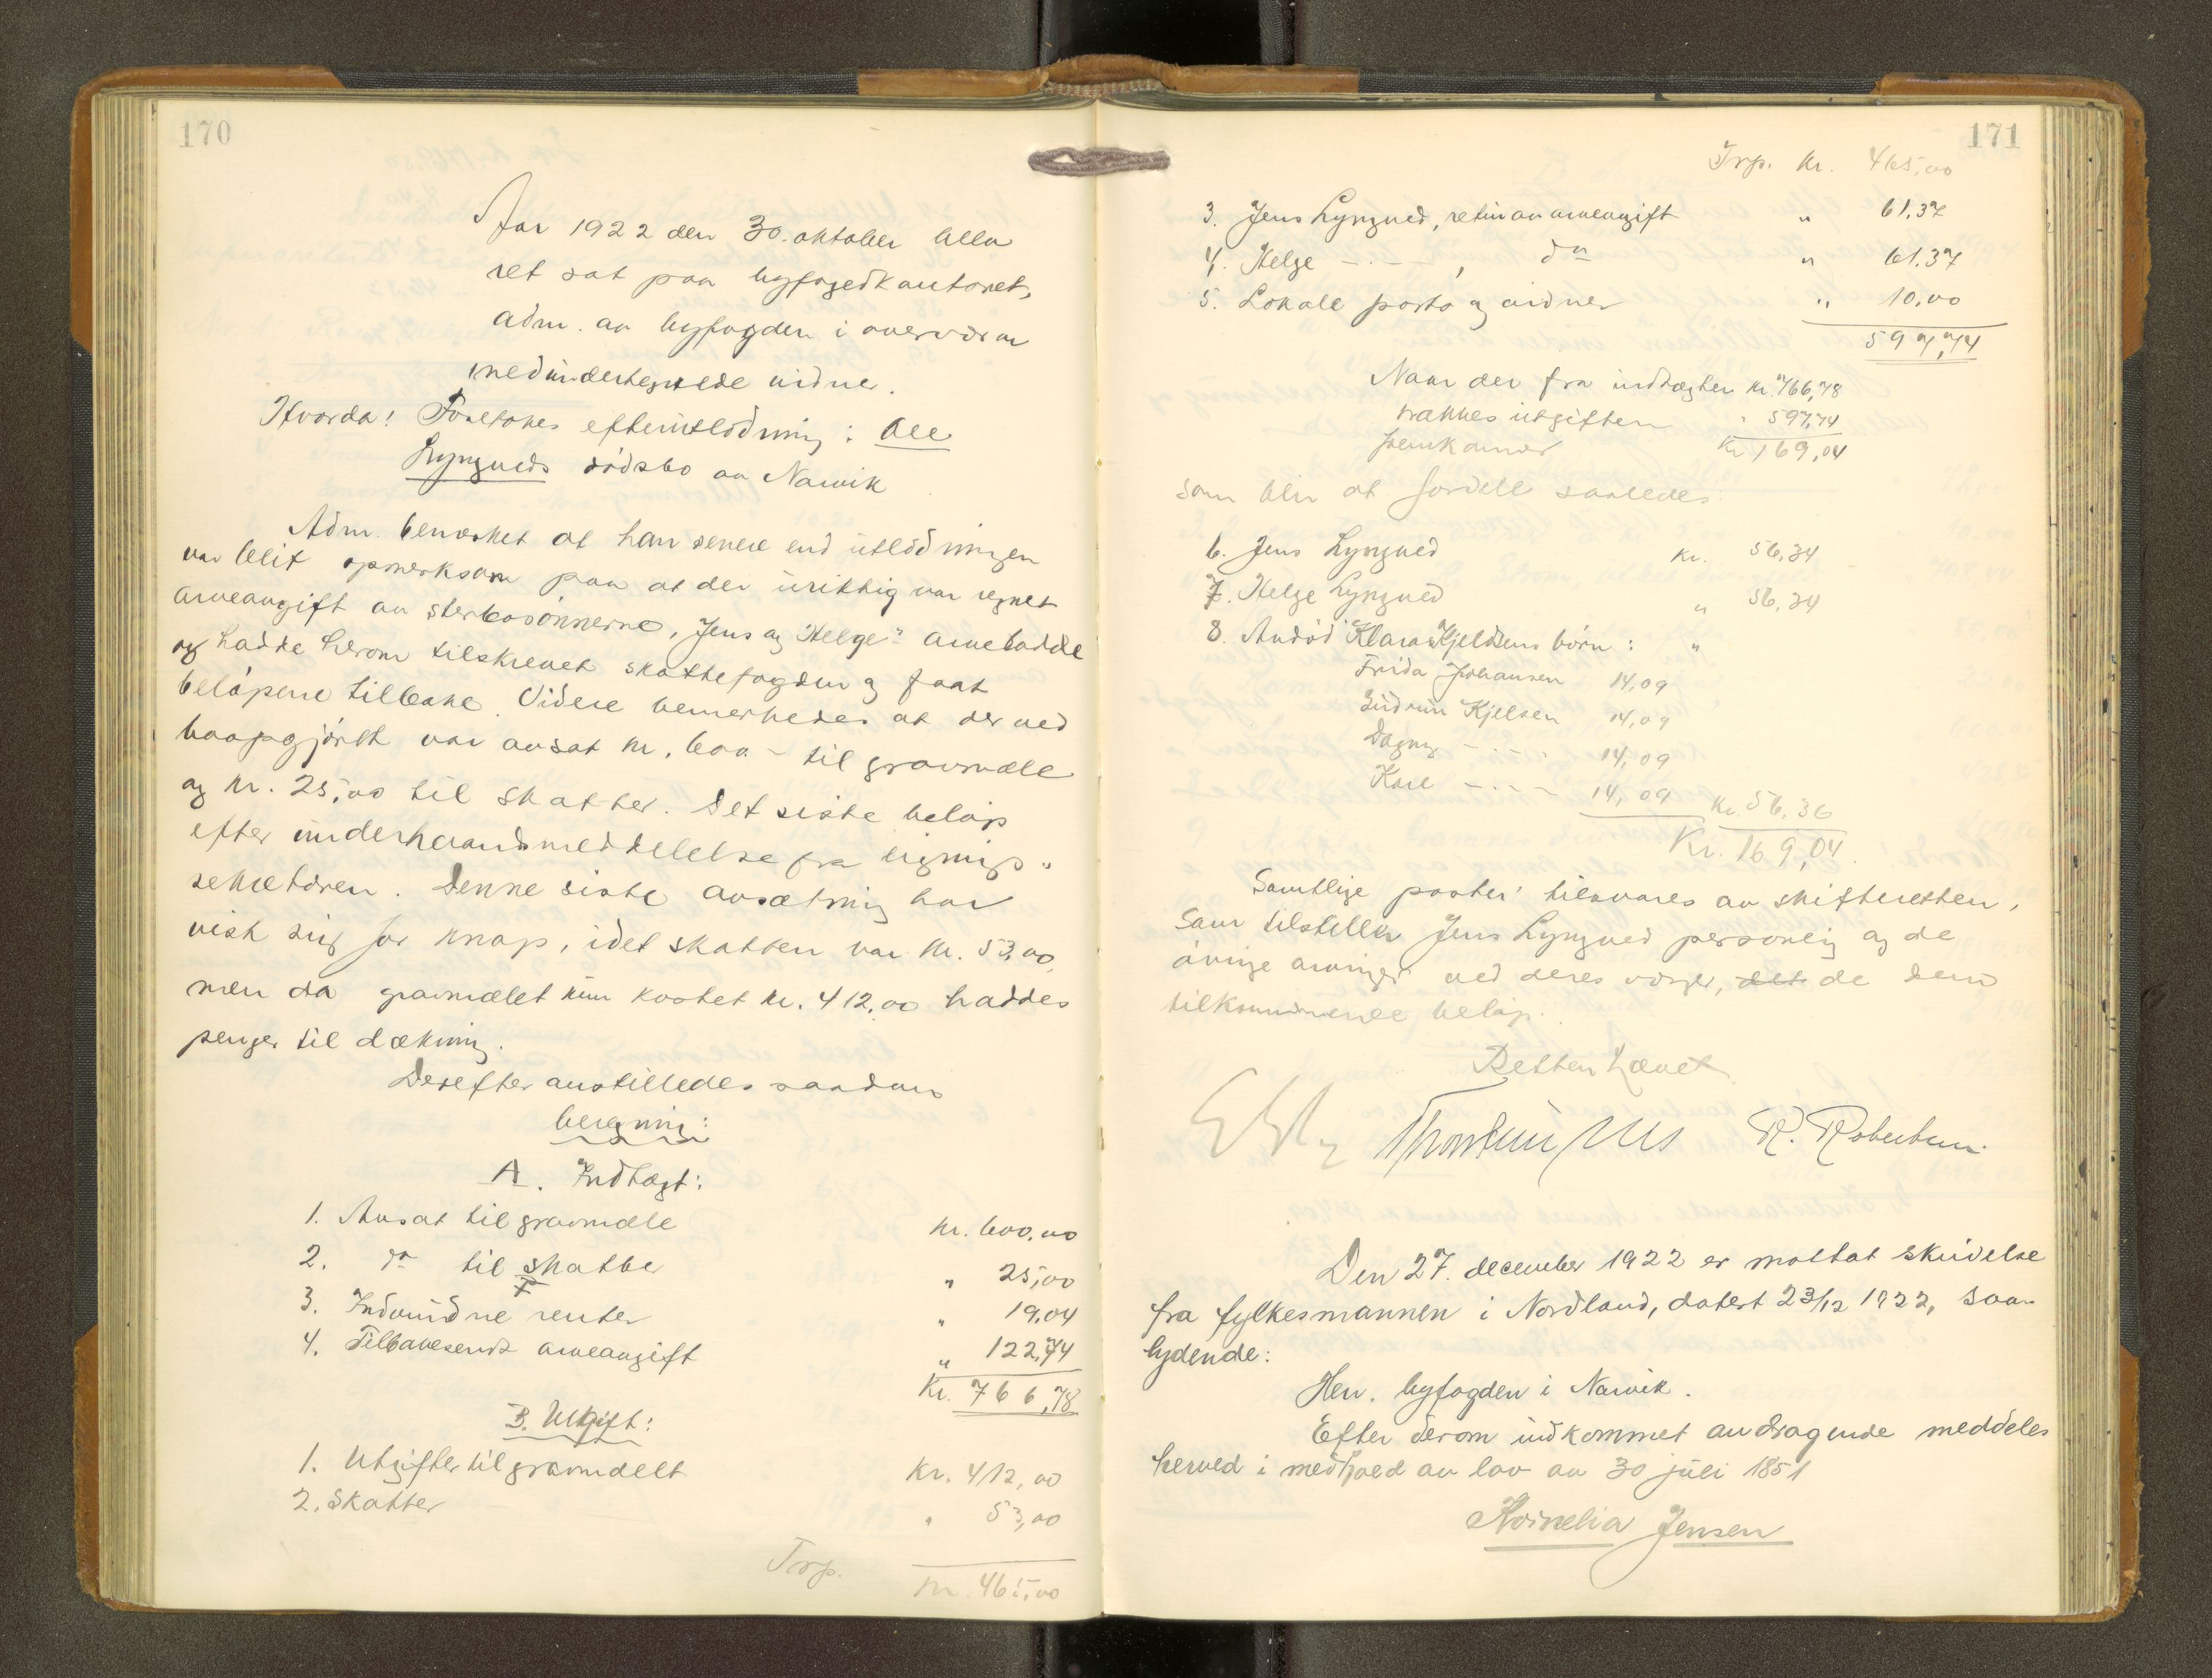 170
Aar 1922 den 30. oktober blev
ret sat paa byfogedkontoret,
adm. av byfogden i overvær av
medundertegnede vidner.
Hvorda! Foretokes efterutlodning i Ole
Lyngveds dødsbo av Narvik
Adm. bemerket at han senere end utlodningen
var blit opmerksom paa at der uriktig var regnet
arveavgift av sterbosønnerne, Jens og Helge's arvelodde
og hadde herom tilskrevet skattefogden og faat
beløpene tilbake. Videre bemerkedes at der ved
boopgjøret var avsat kr. 600.- til gravmæle
og kr. 25,00 til skatter. Det siste beløp
efter underhaandsmeddelelse fra lignings-
sekretæren. Denne siste avsætning har
vist sig for knap, idet skatten var kr. 53,00,
men da gravmælet kun kostet kr. 412,00 haddes
penger til dækning.
Derefter anstilledes saadan
beregning:
A. Indtægt:
1. Avsat til gravmæle kr. 600.00
2. do til skatter " 25,00
3. Indvundne renter " 19.04
4. Tilbakesendt arveavgift " 122,74
Kr. 766,78
B. Utgift:
1. Utgifter til gravmælet Kr. 412,00
2. Skatter " 53,00
Trp. Kr. 465,00
171
Trp. kr. 465,00
3. Jens Lyngved, retur av arveavgift " 61.37
4. Helge -.- , do " 61.37
5. Lokale porto og vidner " 10.00
597,74
Naar der fra indtægten kr. 766,78
trækkes utgiften " 597,74
fremkommer Kr 169,04
som blir at fordele saaledes
6. Jens Lyngved kr. 56,34
7. Helge Lyngved " 56,34
8. Avdød Klara Kjeldsens børn: "
Frida Johansen 14,09
Gudrun Kjelsen 14,09
Dagny -.- 14,09
Karl -.- 14,09 kr. 56,36
Kr. 169,04.
Samtlige poster tilsvares av skifteretten,
som tilstiller Jens Lyngved personlig og de
øvrige arvinger ved deres værger, det de dem
tilkommende beløp.
Retten hævet
R. Robertsen.
Den 27. december 1922 er mottat skrivelse
fra fylkesmannen i Nordland, datert 23/12 1922, saa-
lydende:
Herr. byfogden i Narvik.
Efter derom indkommet andragende meddeles
herved i medhold av lov av 30 juli 1851
Kornelia Jensen